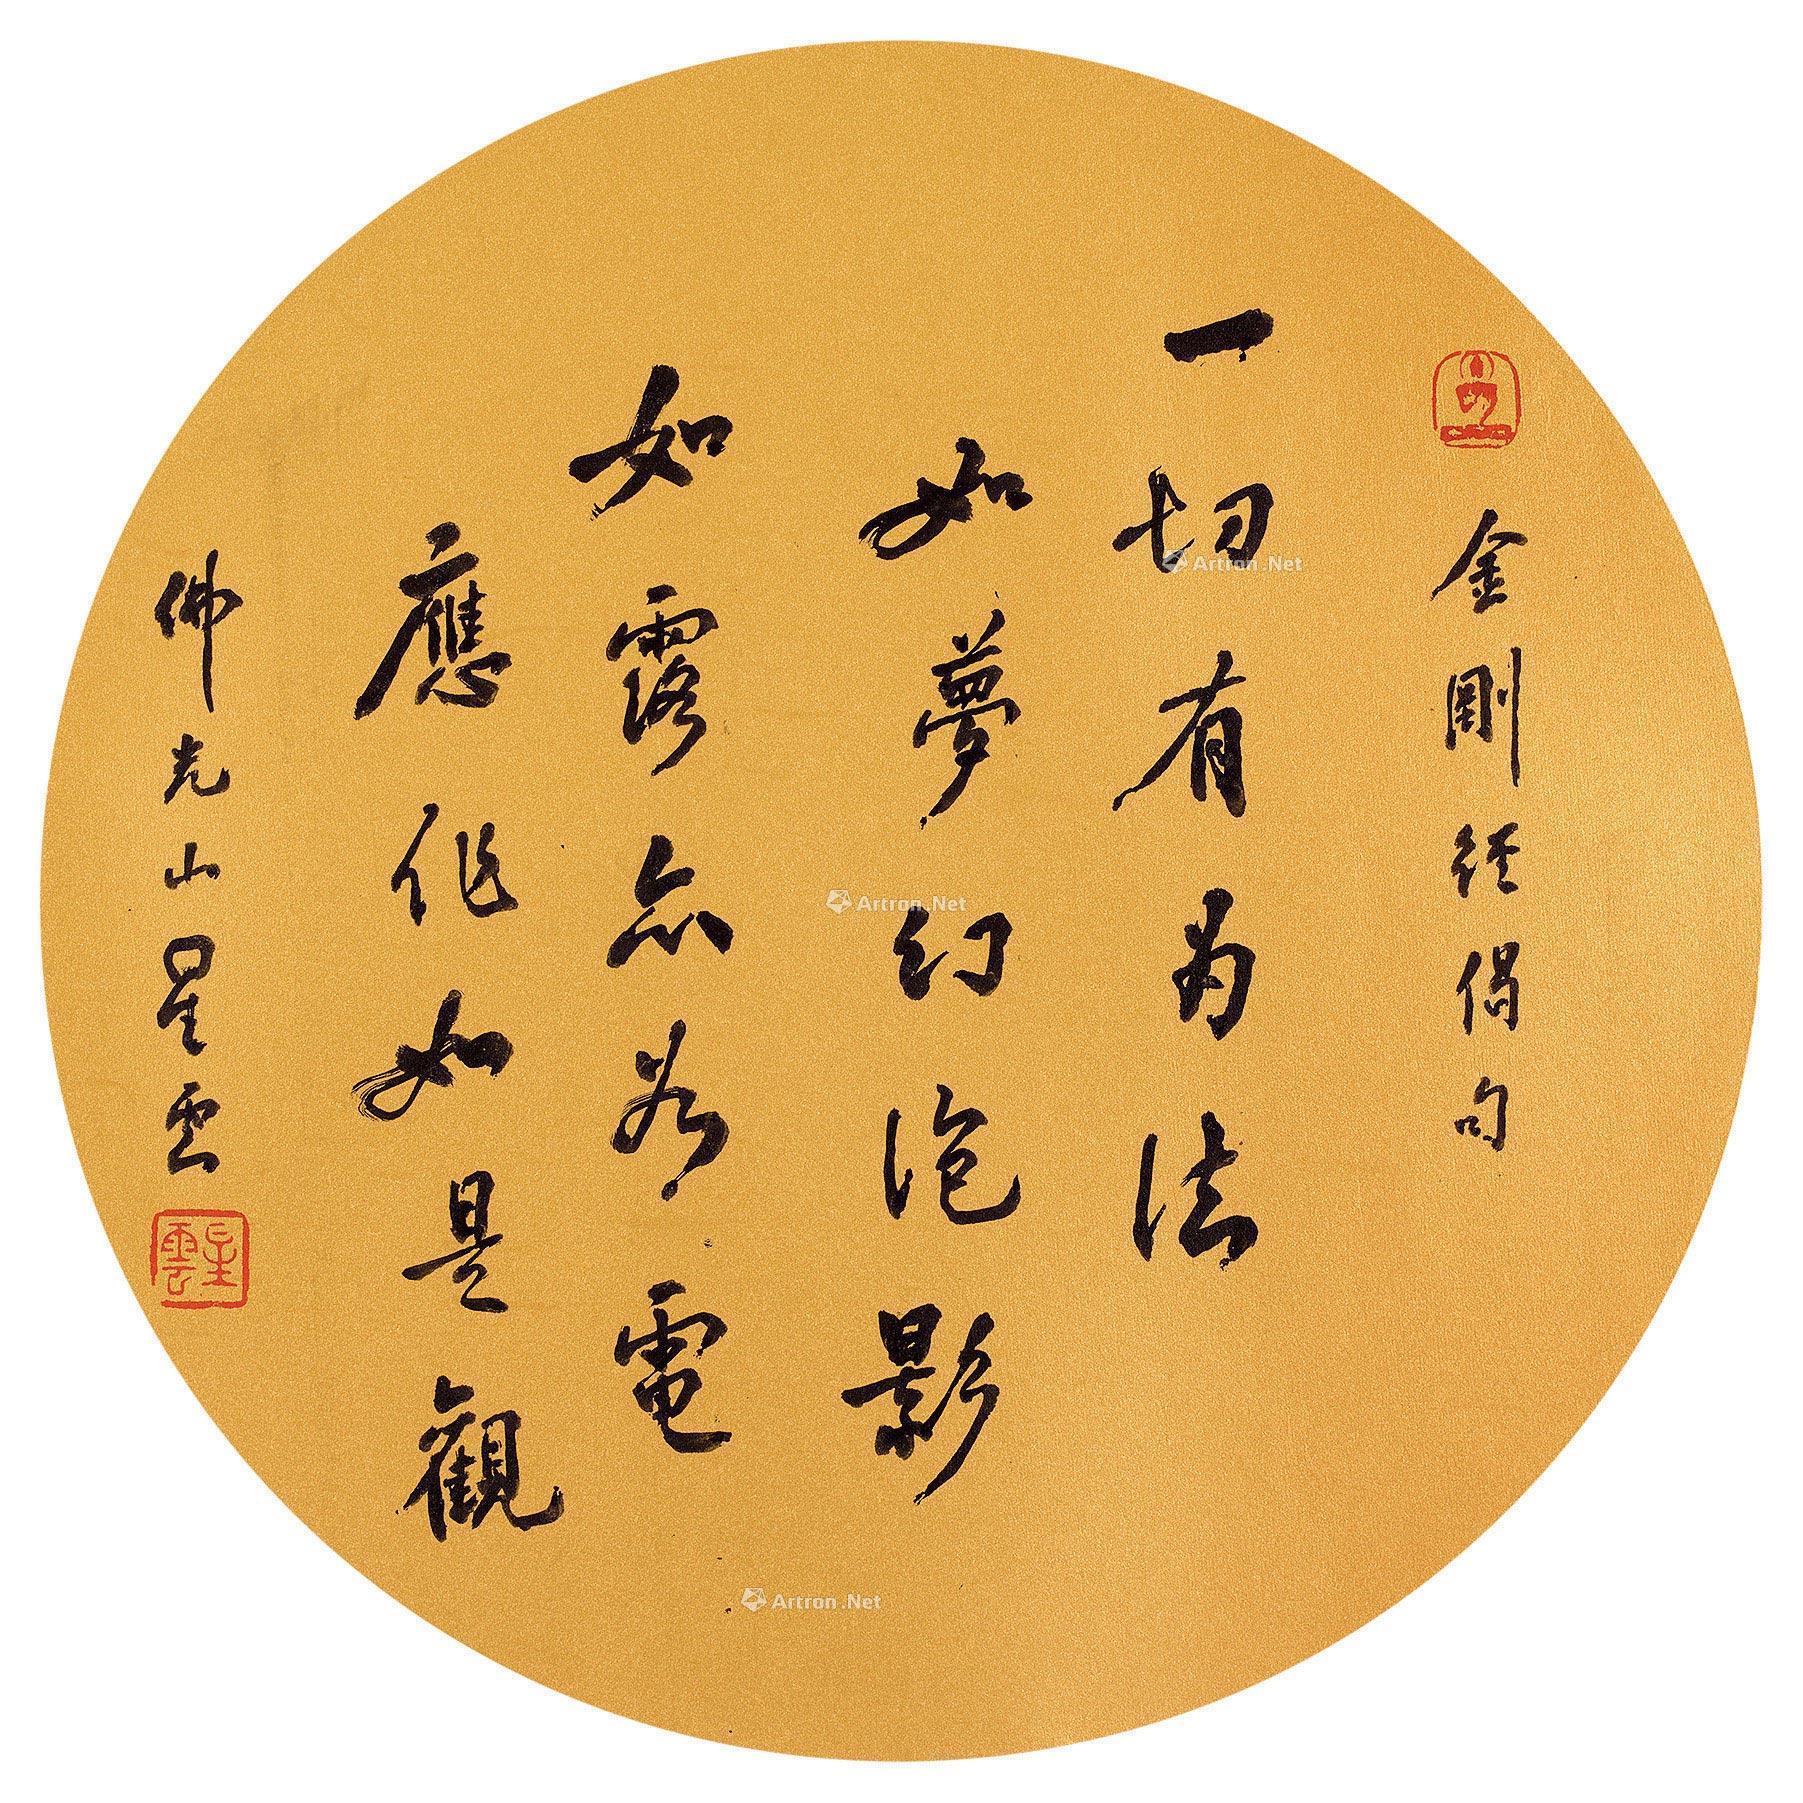 金剛经偈句
一切有為法
如夢幻泡影
如露亦如電
應作如是觀
佛光山星雲
星雲
Artron.Net
Artron.Net
Artron.Net